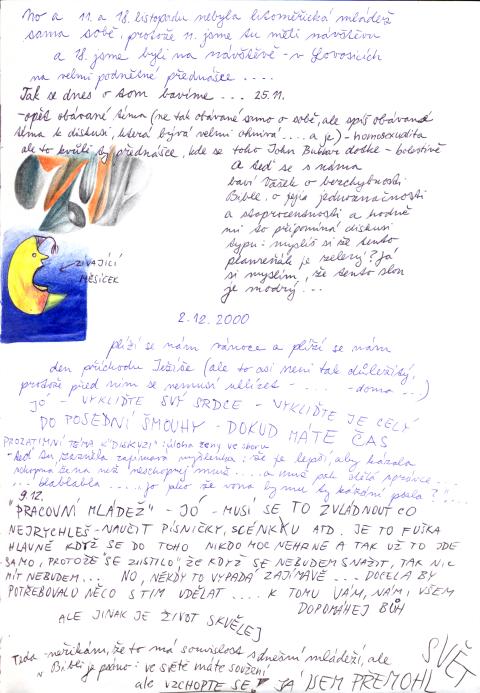 No a 11. a 18. listopadu nebyla litoměřická mládež
sama sobě, protože 11. jsme tu měli návštěvu
a 18. jsme byli na návštěvě - v Lovosicích
na velmi podnětné přednášce ....
Tak se dnes o tom bavíme ... 25.11.
- opět obávané téma (ne tak obávané samo o sobě, ale spíš obávané
téma k diskusi, která bývá velmi ohnivá .... a je) - homosexualita
ale to kvůli té přednášce, kde se toho John dotkl - bolestivě
A teď se s náma
baví Vašek o bezchybnosti
Bible, o její jednoznačnosti
a stoprocentnosti a hodně
mi to připomíná diskusi
typu: myslíš si že tento
plameňák je zelený? Já
si myslím že tento slon
je modrý! ...
ZÍVAJÍCÍ
MĚSÍČEK
2.12.2000
plíží se nám vánoce a plíží se nám
den příchodu Ježíše (ale to asi není tak důležitý,
protože před ním se nemusí uklízet - .... - doma ...)
JÓ - VYKLIĎTE SVÝ SRDCE - VYKLIĎTE JE CELÝ
DO POSEDNÍ ŠMOUHY - DOKUD MÁTE ČAS
PROZATIMNÍ TÉMA K "DISKUZI": úloha ženy ve sboru
- teď tu zazněla zajímavá myšlenka: že je lepší, aby kázala
schopná žena než neschopnej muž .... a muž pak
... blablabla ..... jo ale že vona by mu ty kázání psala?"...
9.12.
"PRACOVNÍ MLÁDEŽ" - JÓ - MUSÍ SE TO ZVLÁDNOUT CO
NEJRYCHLEŠ - NAUČIT PÍSNIČKY, SCÉNKU ATD. JE TO FUŠKA
HLAVNĚ KDYŽ SE DO TOHO NIKDO MOC NEHRNE A TAK UŽ TO JDE
SAMO, PROTOŽE SE ZJISTILO, ŽE KDYŽ SE NEBUDEM SNAŽIT, TAK NIC
MÍT NEBUDEM... NO, NĚKDY TO VYPADÁ ZAJÍMAVĚ .... DOCELA BY
POTŘEBOVALO NĚCO S TÍM UDĚLAT .... K TOMU VÁM, NÁM, VŠEM
DOPOMÁHEJ BŮH
ALE JINAK JE ŽIVOT SKVĚLEJ
Teda - neříkám, že to má souvislost s dnešní mládeží, ale
v Bibli je psáno: ve světě máte soužení
ale VZCHOPTE SE! JÁ JSEM PŘEMOHL
SVĚT